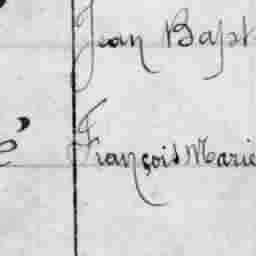 Jean Bapt
François Marie